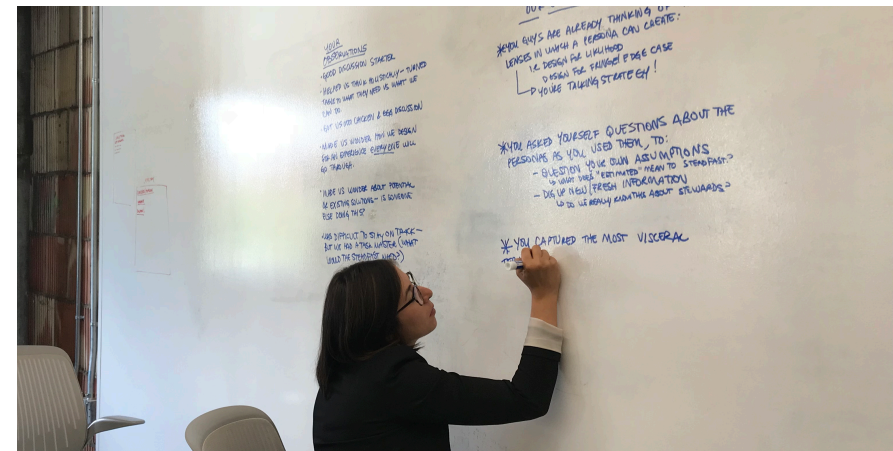 YOUR
OBSERVATIONS
- GOOD DISCUSSION STARTER
- HELPED US THINK HOLISTICALLY - TURNED
TABLE TO WHAT THEY NEED VS WHAT WE
CAN DO.
- GOT US INTO CHICKEN & EGG DISCUSSION
- MADE US WONDER HOW WE DESIGN
FOR AN EXPERIENCE EVERYONE WILL
GO THROUGH.
- MADE US WONDER ABOUT POTENTIAL
OR EXISTING SOLUTIONS - IS SOMEONE
ELSE DOING THIS?
- WAS DIFFICULT TO STAY ON TRACK -
BUT WE HAD A TASK MASTER (WHAT
WOULD THE STEADFAST NEED?)
OUR
*YOU GUYS ARE ALREADY THINKING OF
LENSES IN WHICH A PERSONA CAN CREATE:
I.E. DESIGN FOR LIKLIHOOD
DESIGN FOR FRINGE/EDGE CASE
YOU'RE TALKING STRATEGY!
*YOU ASKED YOURSELF QUESTIONS ABOUT THE
PERSONAS AS YOU USED THEM, TO:
- QUESTION YOUR OWN ASSUMPTIONS
WHAT DOES "ESTIMATED" MEAN TO STEADFAST?
- DIG UP NEW/FRESH INFORMATION
DO WE REALLY KNOW THIS ABOUT STEWARDS?
* YOU CAPTURED THE MOST VISCERAL